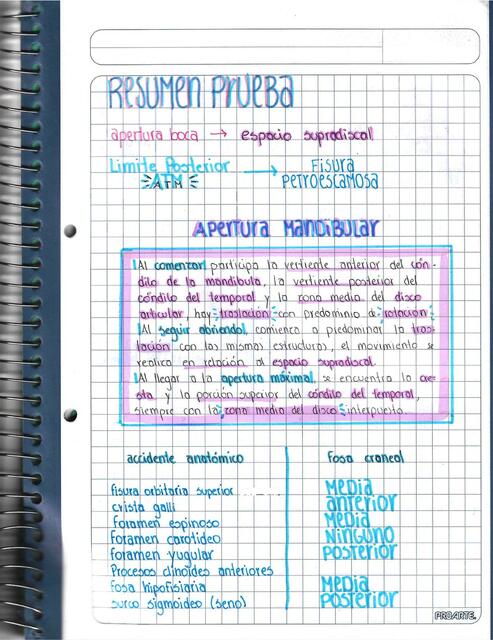 RESUMEN PRUEBA
apertura boca → espacio supradiscal
Límite Posterior → Fisura
ATM petroescamosa
Apertura Mandibular
Al comenzar participa la vertiente anterior del cón-
dilo de la mandíbula, la vertiente posterior del
cóndilo del temporal y la zona media del disco
articular, hay traslación con predominio de rotación.
Al seguir abriendo, comienza a predominar la tras-
lación con las mismas estructuras, el movimiento se
realiza en relación al espacio supradiscal.
Al llegar a la apertura máxima, se encuentra la cre-
sta y la porción superior del cóndilo del temporal,
siempre con la zona media del disco interpuesta.
accidente anatómico fosa craneal
Fisura orbitaria superior Media
crista galli anterior
Foramen espinoso Media
Foramen carotideo Ninguno
foramen yugular Posterior
Procesos clinoides anteriores
Fosa hipofisiaria Media
surco sigmoideo (seno) Posterior
PROARTE.